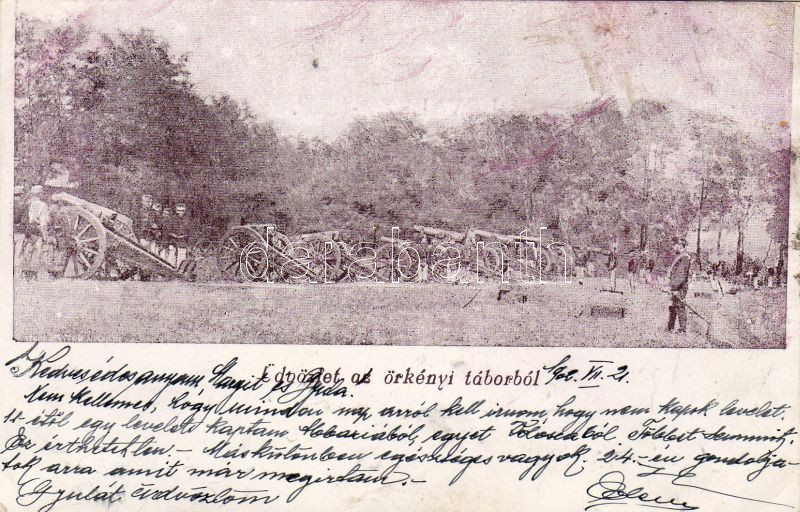 darabanth
Üdvözlet az örkényi táborból 902. VII. 2.
Kedves édosanyam, Margit és Gyula.
Nem kellemes, hogy minden nap arról kell irnom, hogy nem kapok levelet.
1-étől egy levelet kaptam Abbáziából, egyet Többet semmit,
Ez érthetetlen. – Máskülönben egészséges vagyok, 24-én gondolja-
tok arra amit már megirtam. –
Gyulát üdvözlöm